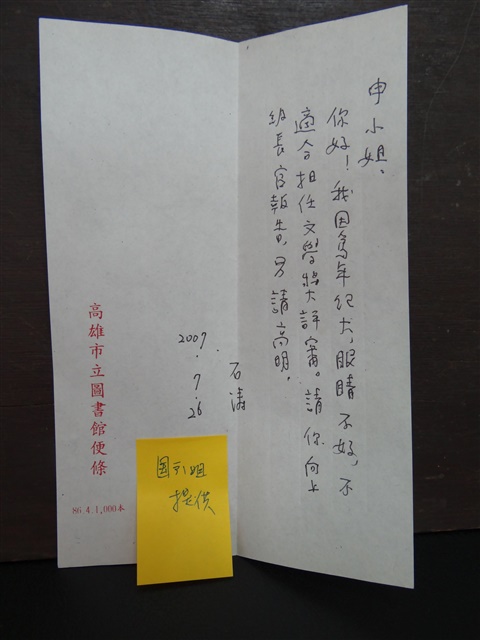 申小姐、
你好！我因為年紀大，眼睛不好，不
適合担任文學獎大評審。請你向上
級長官報告，另請高明。
石濤
2007.7.26
高雄市立圖書館便條
86.4.1,000本
姐
提供